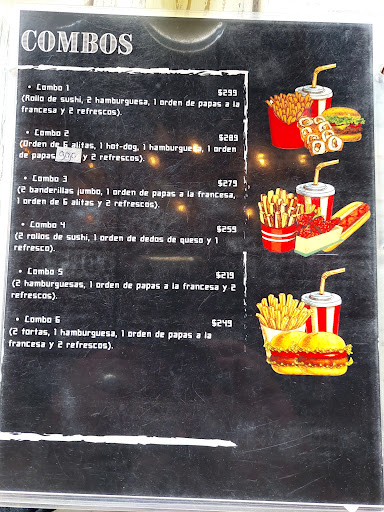 COMBOS
• Combo 1
$299
(Rollo de sushi, 2 hamburguesa, 1 orden de papas a la
francesa y 2 refrescos).
• Combo 2
$289
(Orden de 6 alitas, 1 hot-dog, 1 hamburguesa, 1 orden
de papas y 2 refrescos).
• Combo 3
$279
(2 banderillas jumbo, 1 orden de papas a la francesa,
1 orden de 6 alitas y 2 refrescos).
• Combo 4
$259
(2 rollos de sushi, 1 orden de dedos de queso y 1
refresco).
• Combo 5
$219
(2 hamburguesas, 1 orden de papas a la francesa y 2
refrescos).
• Combo 6
$249
(2 tortas, 1 hamburguesa, 1 orden de papas a la
francesa y 2 refrescos).